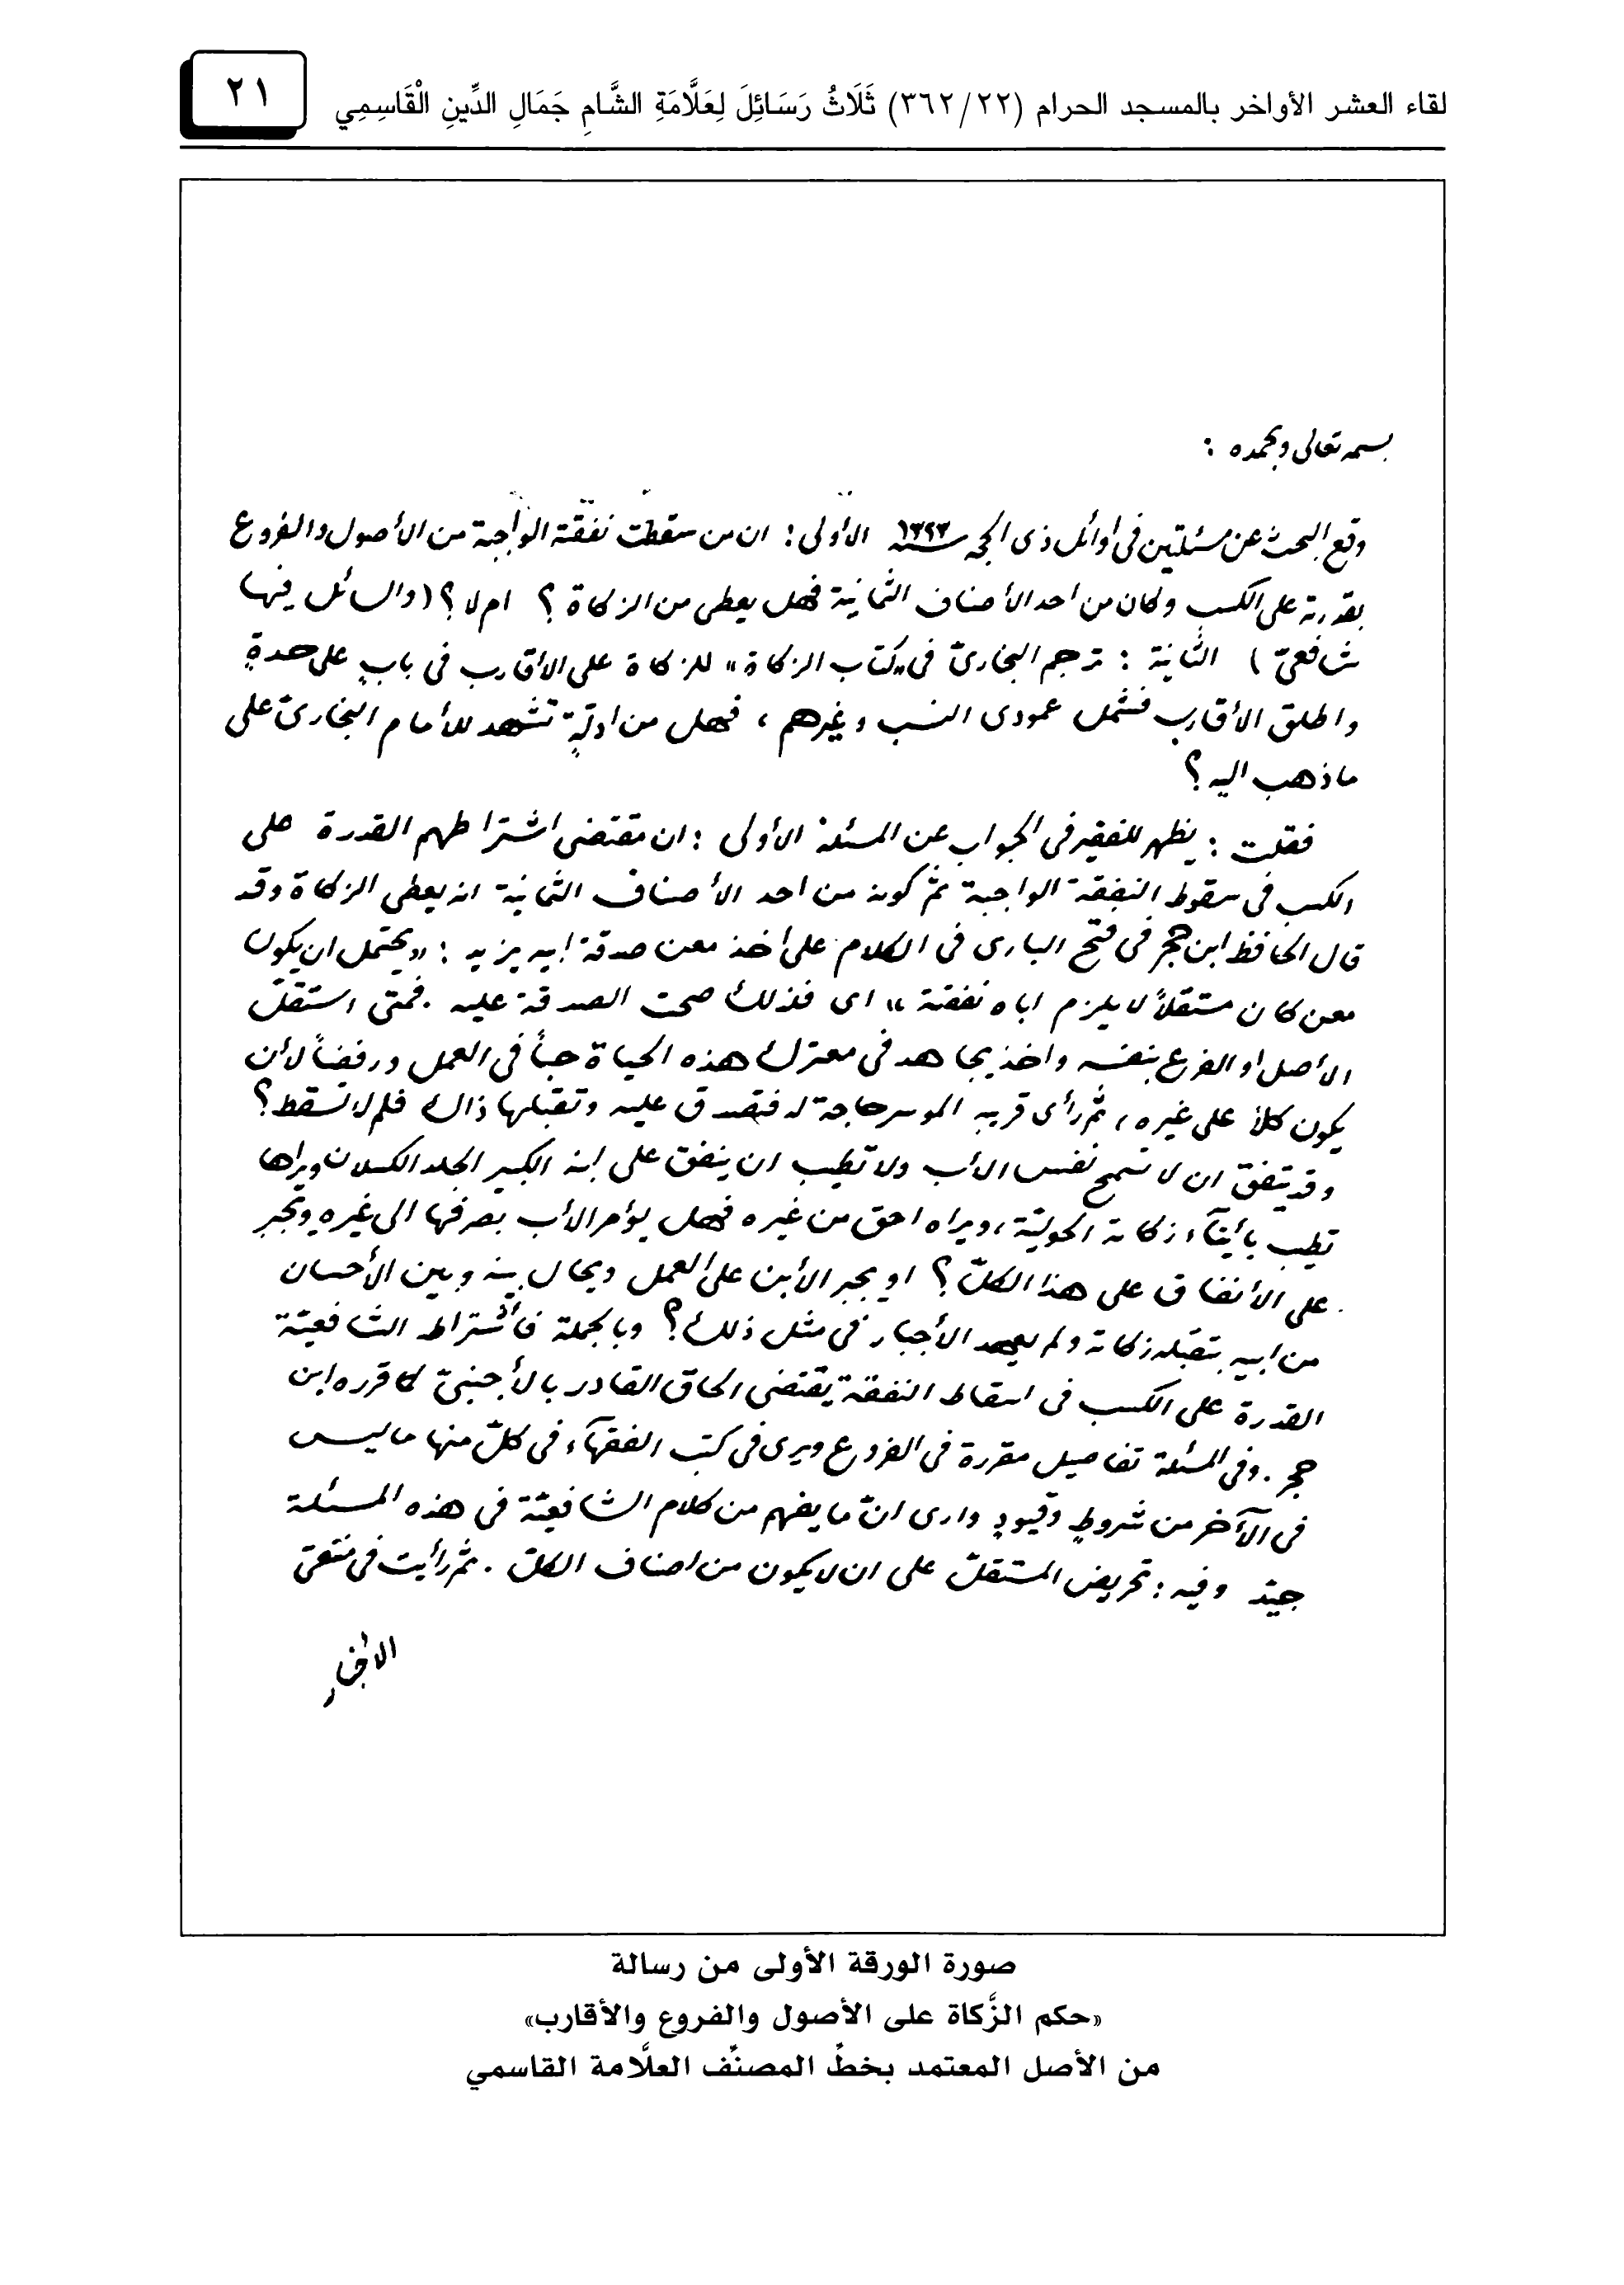 لقاء العشر الأواخر بالمسجد الحرام (٣٦٢/٢٢) ثَلَاثُ رَسَائِلَ لِعَلَّامَةِ الشَّامِ جَمَالِ الدِّينِ الْقَاسِمِي
٢١
بسمه تعالى وبحمده :
وقع البحث عن مسئلتين في أوائل ذى الحجة سنة ١٣٢٣ الأولى : ان من سقطت نفقته الواجبة من الأصول والفروع
بقدرته على الكسب وكان من احد الأصناف الثمانية فهل يعطى من الزكاة ؟ ام لا ؟ (والسائل فيها
شافعيّ ) الثانية : ترجم البخاريّ في «كتاب الزكاة» للزكاة على الأقارب في بابٍ على حدةٍ
واطلق الأقارب فشمل عمودى النسب وغيرهم ، فهل من ادلّةٍ تشهد للأمام البخاريّ على
ماذهب اليه ؟
فقلت : يظهر للفقير في الجواب عن المسئلة الأولى : ان مقتضى اشتراطهم القدرة على
الكسب في سقوط النفقة الواجبة ثمّ كونه من احد الأصناف الثمانية انه يعطى الزكاة وقد
قال الحافظ ابن حجر في فتح البارى في الكلام على أخذ معن صدقة ابيه يزيد : «يحتمل ان يكون
معن كان مستقلاً لا يلزم اباه نفقته» اى فلذلك صحت الصدقة عليه . فمتى استقلّ
الأصل او الفرع بنفسه واخذ يجاهد في معترك هذه الحياة حباً في العمل ورفضاً لأن
يكون كلاً على غيره ، ثم رأى قريبه الموسر حاجة له فتصدق عليه وتقبلها ذاك فلم لا تسقط ؟
وقد يتفق ان لا تسمح نفس الأب ولا تطيب ان ينفق على ابنه الكبير الجلد الكسلان ويراها
تطيب بأيتآء زكاته الحوليّة ، ويراه احق من غيره فهل يؤمر الأب بصرفها الى غيره ويجبر
على الأنفاق على هذا الكلّ ؟ او يجبر الأبن على العمل ويحال بينه وبين الأحسان
من ابيه بتقبله زكاته ولم يعهد الأجبار في مثل ذلك ؟ وبالجملة فأشتراط الشافعيّة
القدرة على الكسب في اسقاط النفقة يقتضى الحاق القادر بالأجنبيّ كما قرره ابن
حجر . وفي المسئلة تفاصيل مقررة في الفروع ويرى في كتب الفقهآء في كلّ منها ماليس
في الآخر من شروطٍ وقيودٍ وارى انّ ما يفهم من كلام الشافعيّة في هذه المسئلة
جيّد وفيه : تحريض المستقلّ على ان لا يكون من اصناف الكلّ . ثم رأيت في منتقى
الأخبار
صورة الورقة الأولى من رسالة
«حكم الزَّكاة على الأصول والفروع والأقارب»
من الأصل المعتمد بخطِّ المصنِّف العلَّامة القاسمي